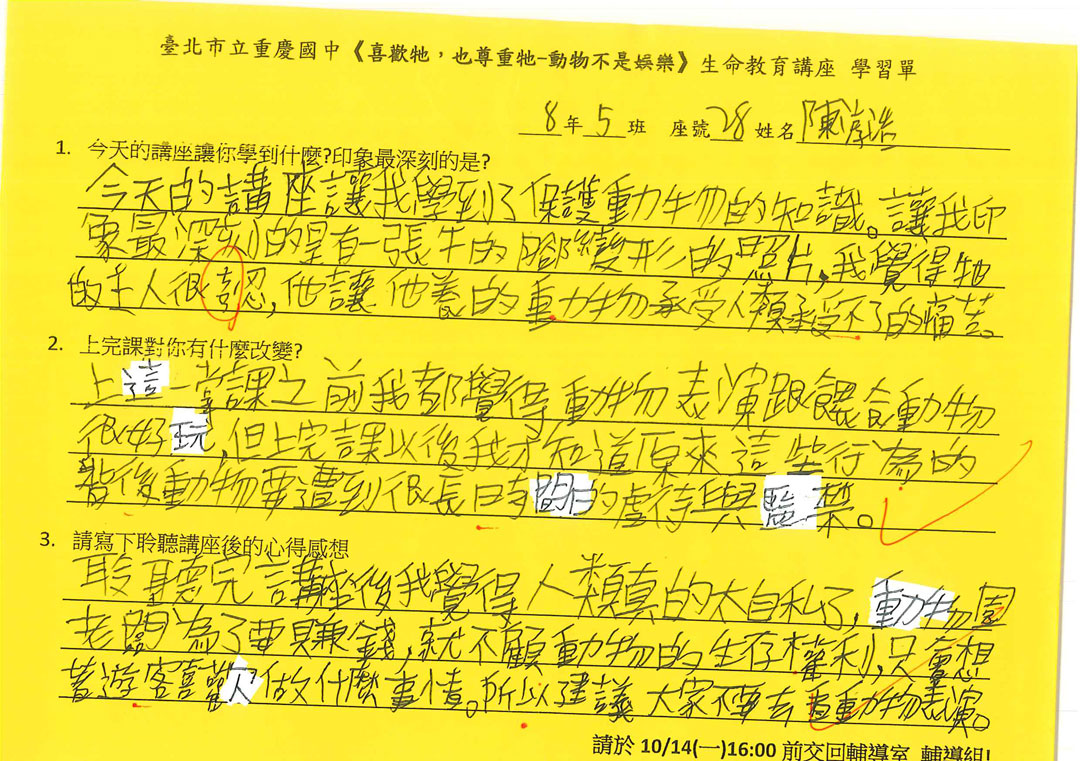 臺北市立重慶國中《喜歡牠，也尊重牠-動物不是娛樂》生命教育講座 學習單
8年5班 座號28姓名陳
1. 今天的講座讓你學到什麼?印象最深刻的是?
今天的講座讓我學到了保護動物的知識。讓我印
象最深刻的是有一張牛的腳變形的照片，我覺得牠
的主人很忍，他讓他養的動物承受人類承受不了的痛苦。
2. 上完課對你有什麼改變?
上這一堂課之前我都覺得動物表演跟餵食動物
很好玩，但上完課以後我才知道原來這些行為的
背後動物要遭到很長時間的虐待與監禁。
3. 請寫下聆聽講座後的心得感想
聆聽完講座後我覺得人類真的太自私了，動物園
老闆為了要賺錢，就不顧動物的生存權利，只會想
著遊客喜歡做什麼事情。所以建議大家不要去看動物表演。
請於 10/14(一)16:00 前交回輔導室 輔導組!